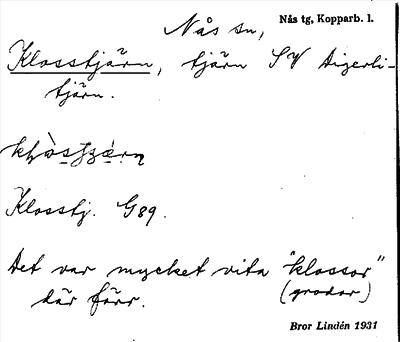 Nås sn,
Nås tg, Kopparb. l.
Klosstjärn, tjärn SV Aigerli-
tjärn.
Klosstj. G89.
Det var mycket vita "klossor"
där förr. (grodor)
Bror Lindén 1931